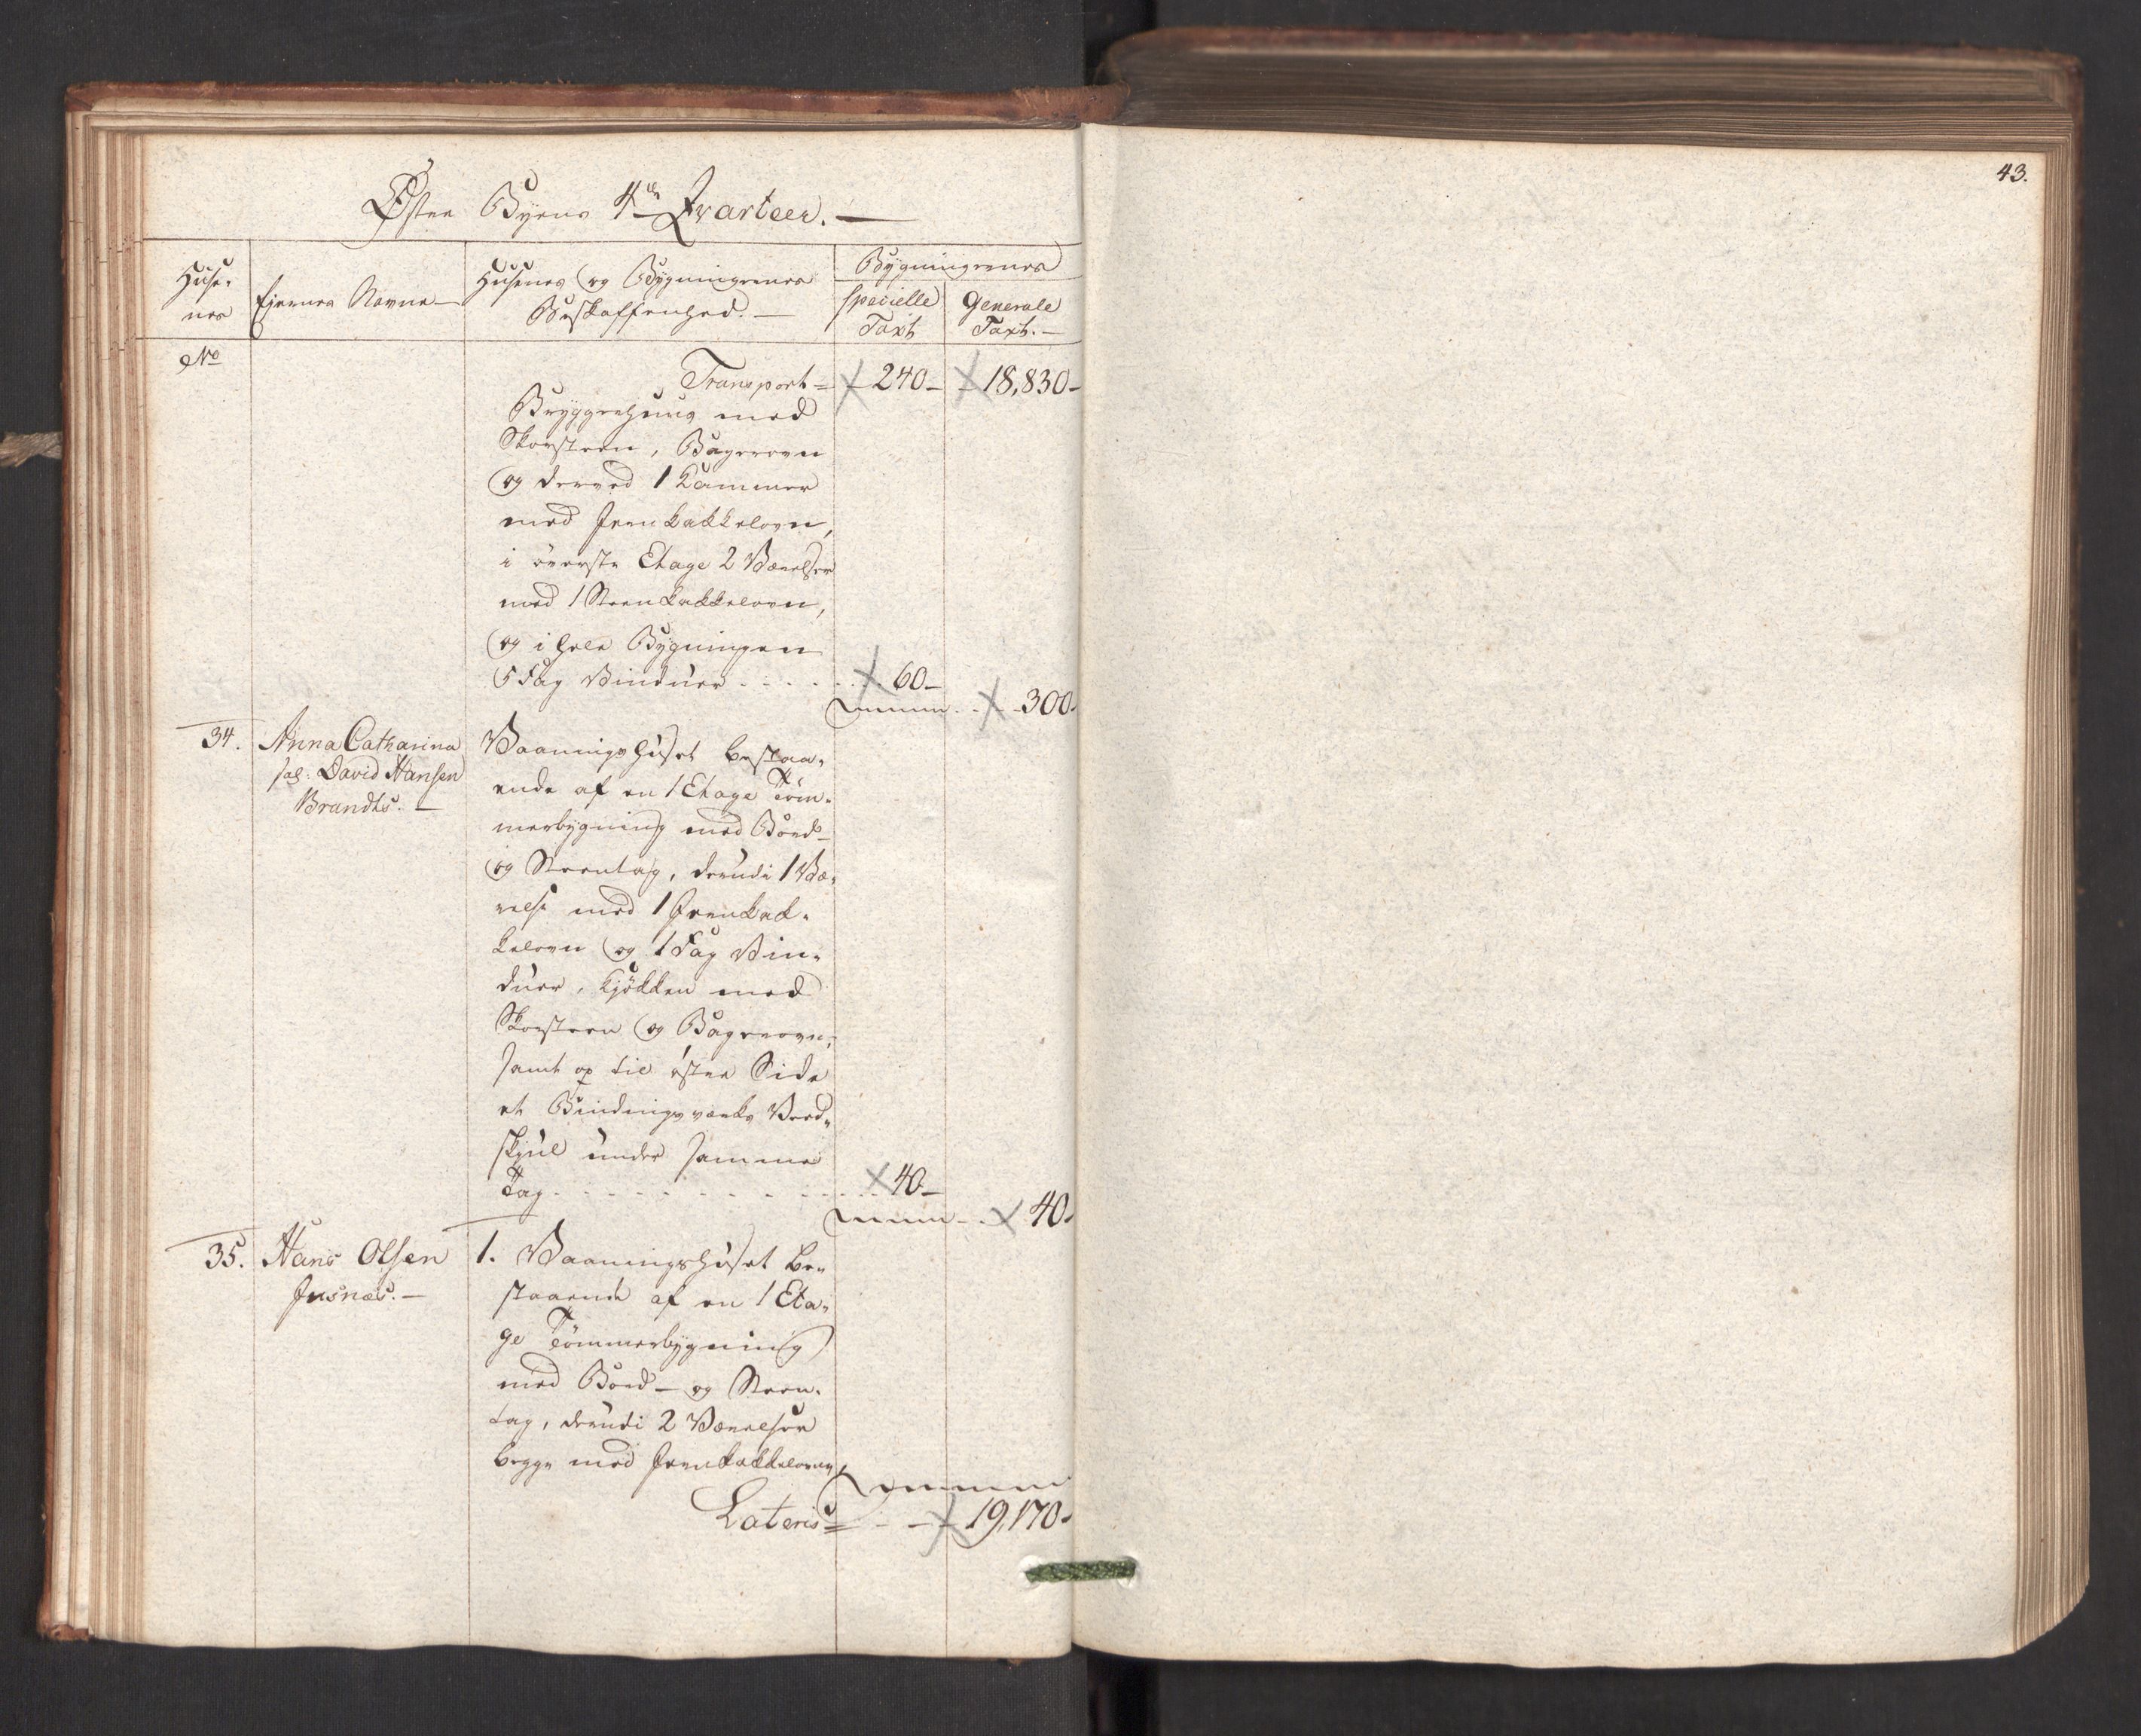 43.
Østre Byens 4de Qvarteer.
Huse-
nes
Eiernes Navne
Husenes og Bygningernes
Beskaffenhed.
Bygningernes
specielle
Taxt
Generale
Taxt.
No
Transport = 240 - 18,830 -
Bryggerhuus med
Skorsteen, Bagerovn
og derved 1 Kammer
med Jernkakkelovn,
i överste Etage 2 Værelser
med 1 Steenkakkelovn,
og i hele Bygningen
5 Fag Vinduer . . . . . 60 -
300.
34. Anna Catharina
sal: David Hansen
Brandts.
Vaaningshuset bestaa-
ende af en 1 Etage Töm-
merbygning med Bord-
og Steentag, derudi 1 Væ-
relse med 1 Jernkak-
kelovn og 1 Fag Vin-
duer, Kjökken med
Skorsteen og Bagerovn,
samt op til östre Side
et Bindingsværks Veed-
skjul under samme
Tag . . . . . . . . . . 40 -
40.
35. Hans Olsen
1. Vaaningshuset be-
staaende af en 1 Eta-
ge Tömmerbygning
med Bord- og Steen-
tag, derudi 2 Værelser
begge med Jernkakkelovne,
Lateris = 19,170.